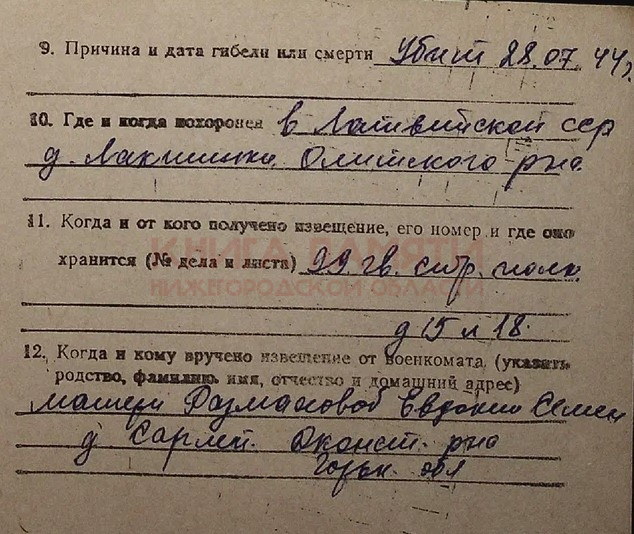 9. Причина и дата гибели или смерти Убит 28.07.44г.
10. Где и когда похоронен в Латвийской сср
д. Лакишики Олитского р-на
11. Когда и от кого получено извещение, его номер и где оно
КНИГА ПАМЯТИ
хранится (№ дела и листа) 99 гв. стр. полк
НИЖЕГОРОДСКОЙ ОБЛАСТИ
д 15 л 18.
12. Когда и кому вручено извещение от военкомата, (указать
родство, фамилию, имя, отчество и домашний адрес)
матери Размаховой Евдокии Семен
д Сарлей. Д.Конст. р-на
Горьк. обл